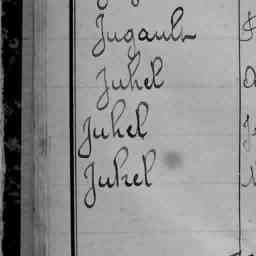 Jugault
Juhel
Juhel
Juhel